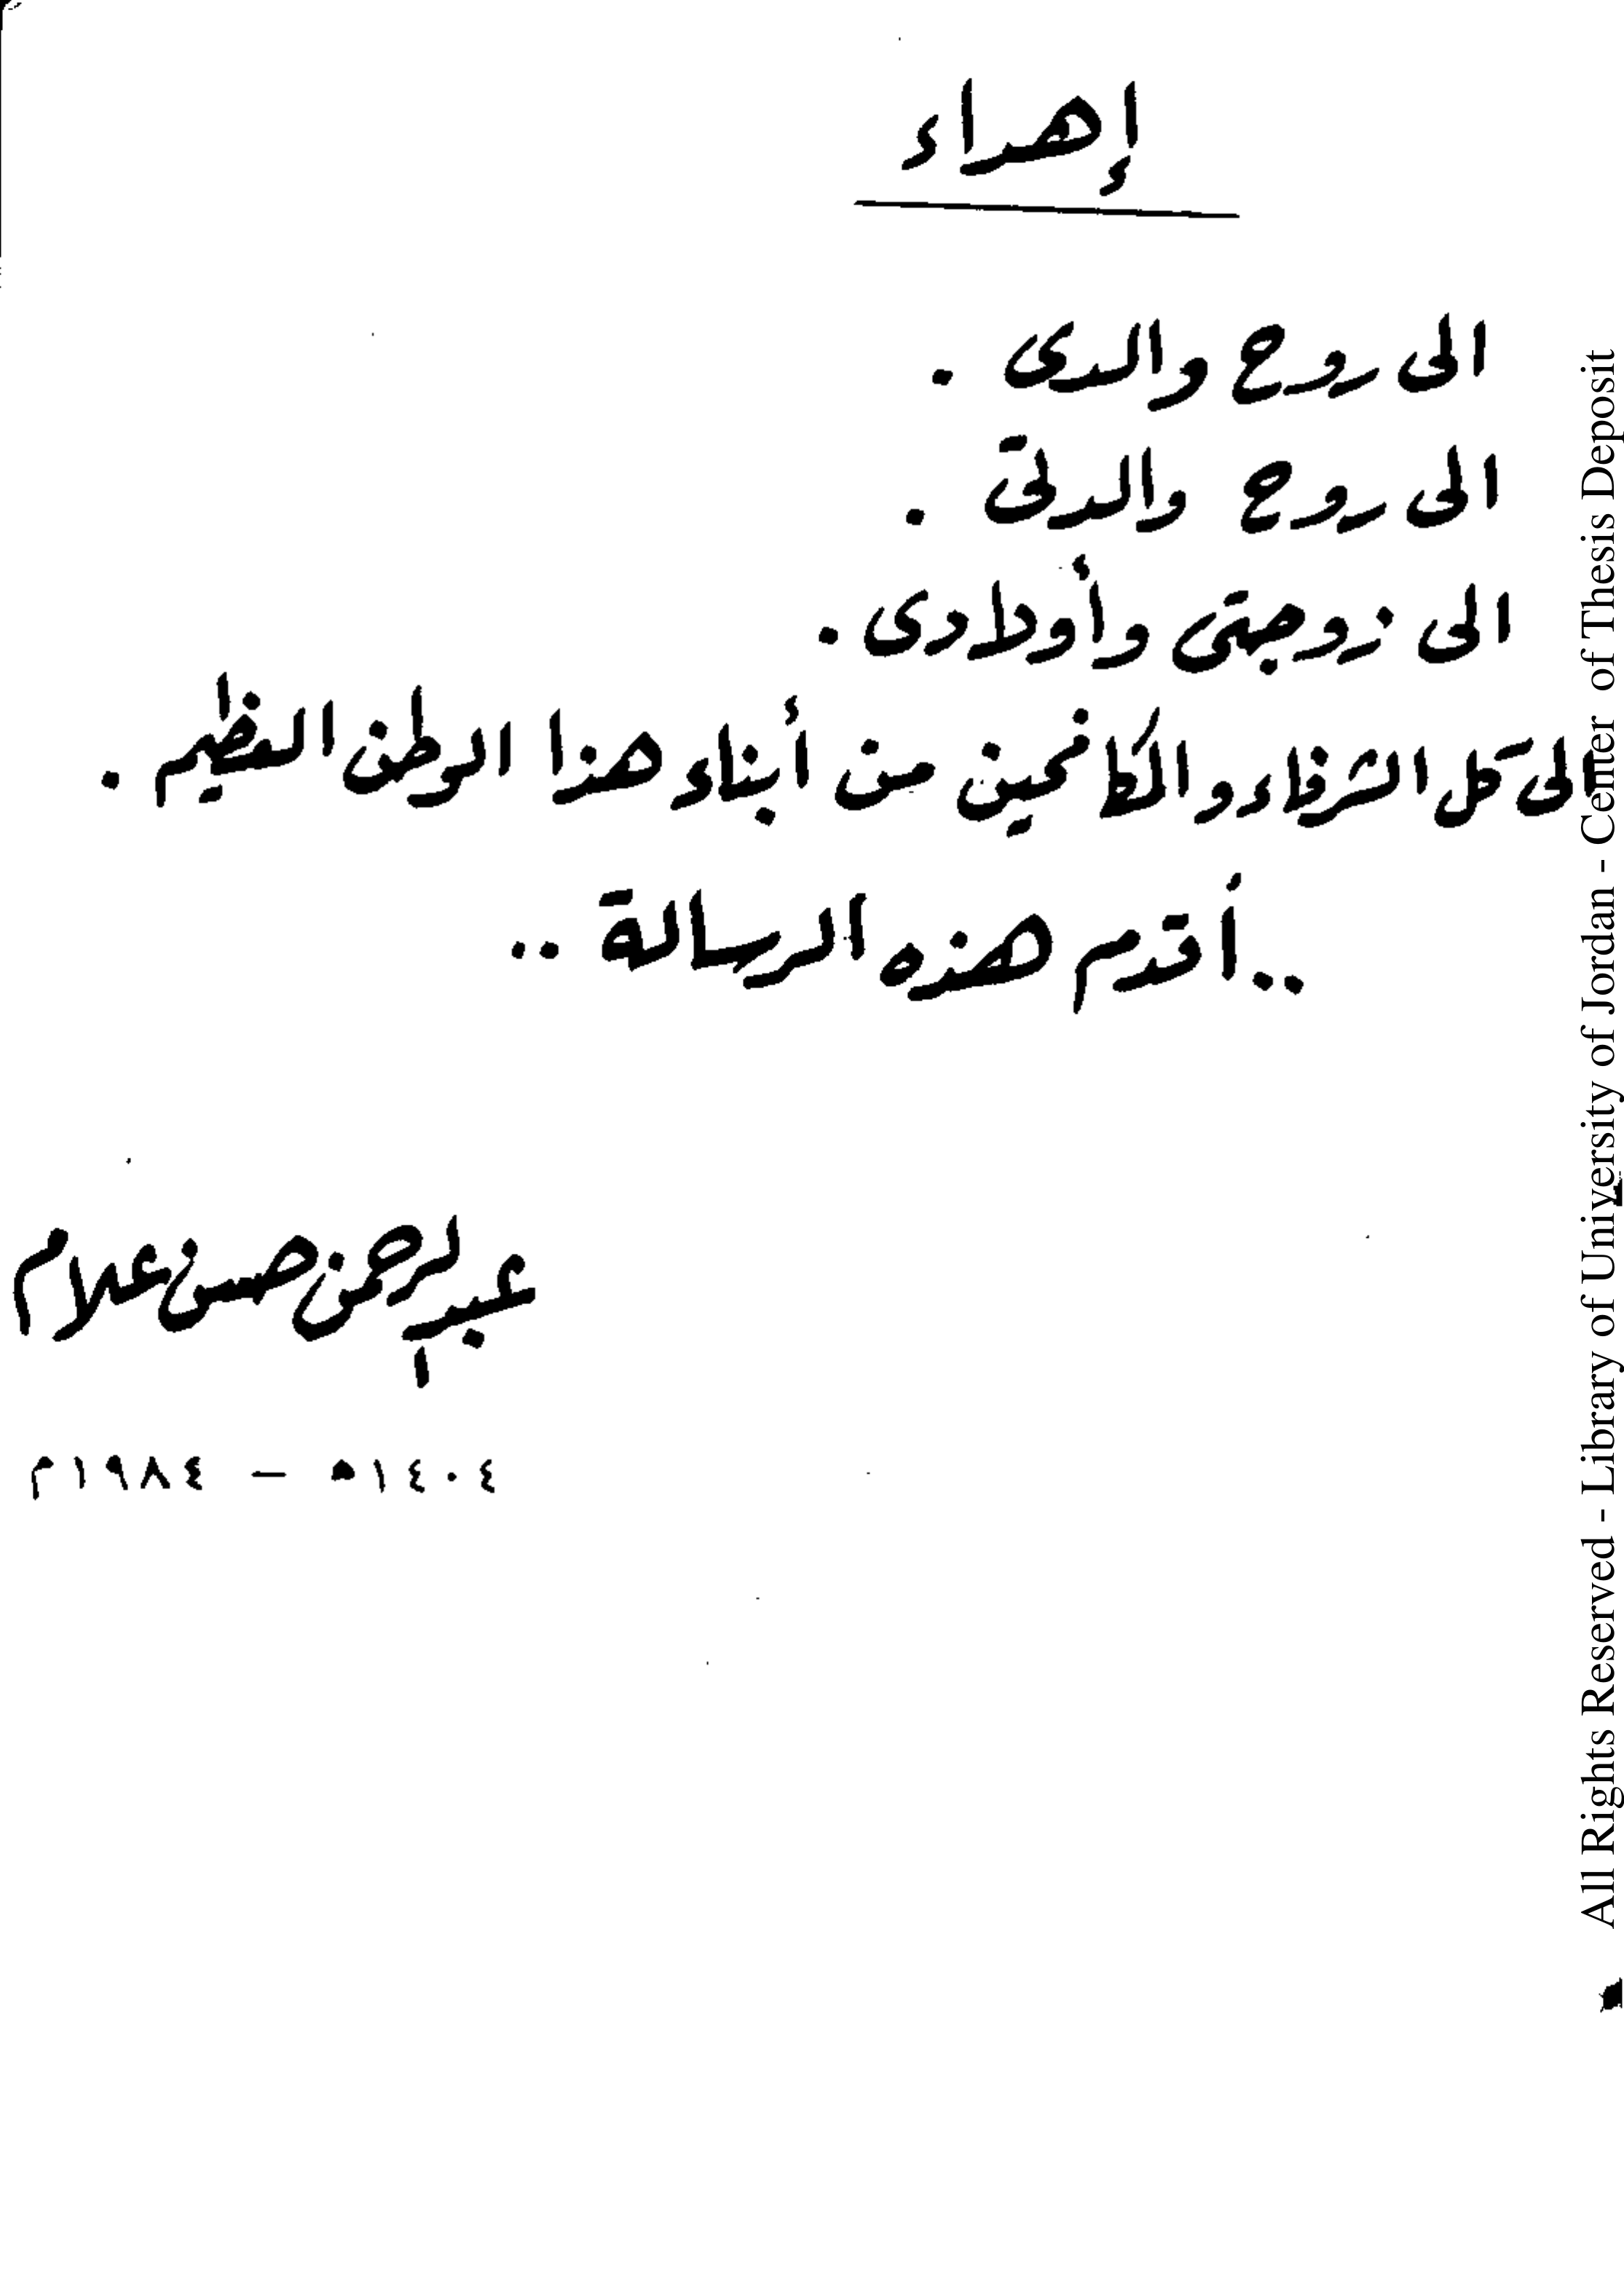 إهداء
الى روح والدى .
الى روح والدتى .
الى زوجتى وأولادى .
الى كل الشرفاء والكافحين من أبناء هذا الوطن العظيم .
.. أقدم هذه الرسالة ..
عبد الرحمن حسن علام
١٤٠٤ه – ١٩٨٤م
All Rights Reserved - Library of University of Jordan - Center of Thesis Deposit